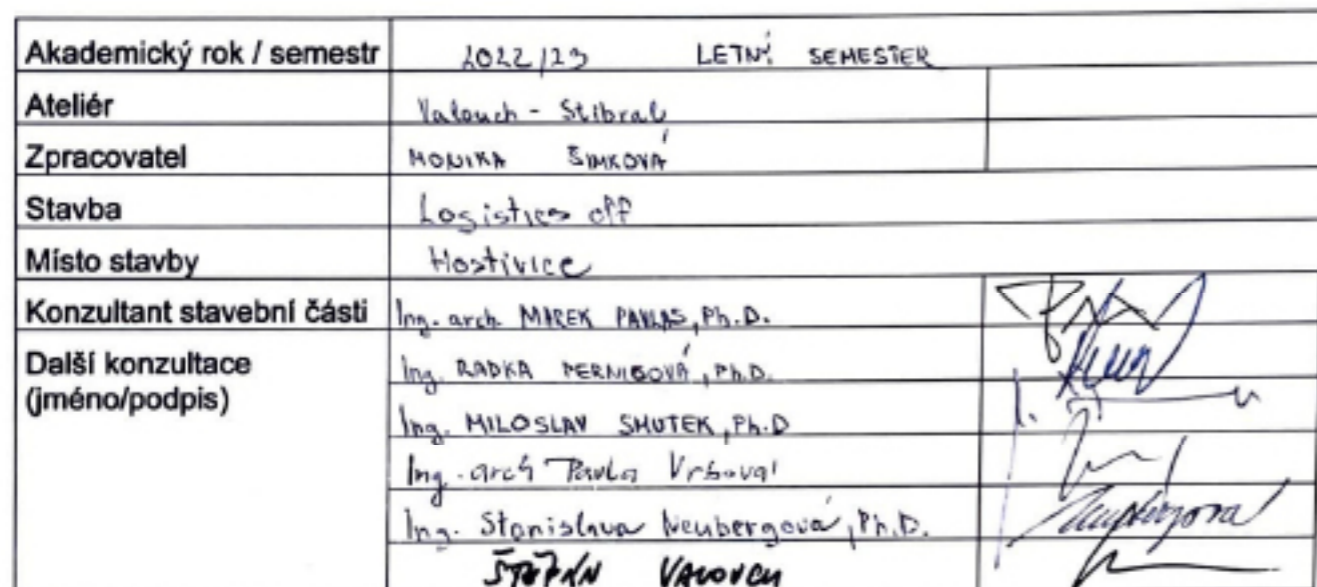 Akademický rok / semestr 2022/23 LETNÝ SEMESTER
Ateliér Valouch - Stibral
Zpracovatel MONIKA ŠIMKOVÁ
Stavba Logistics off
Místo stavby Hostivice
Konzultant stavební části Ing. arch. MAREK PAVLAS, Ph.D.
Další konzultace Ing. RADKA PERNICOVÁ, Ph.D.
(jméno/podpis)
Ing. MILOSLAV SMUTEK, Ph.D
Ing. arch Pavla Vrbová
Ing. Stanislava Neubergová, Ph.D.
ŠTĚPÁN VALOUCH